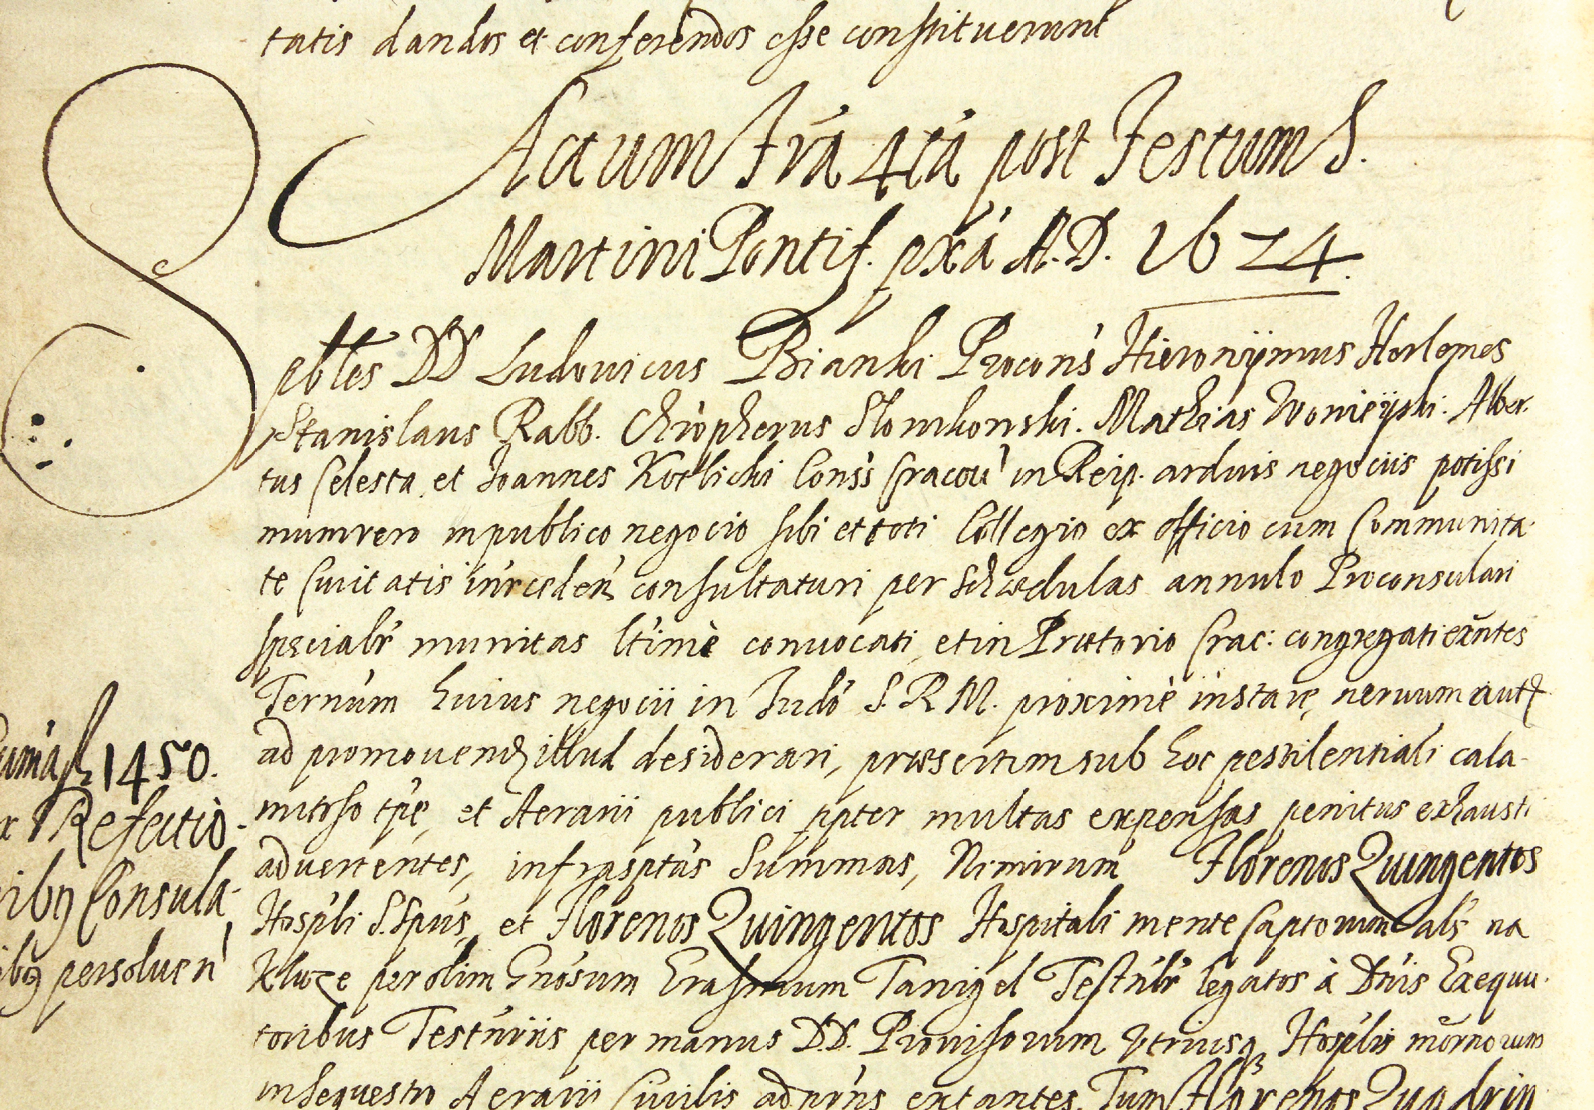 tatis dandos et conferendos esse constituerunt
Actum Fra 4ta post Festum S.
Martini Pontif. pxa A. D. 1624.
Spbles DD Ludovicus Bianki Procons Hieronijmus Herlemes
Stanislaus Rabb. Chropherus Slomkonski. Mathias Woniejski. Alber
tus Celesta et Joannes Kotlicki Conss Cracou in Reip. arduis negociis potissi
mum vero in publico negocio sibi et toti Collegio ex officio cum Communita
te Civitatis inrceden consultaturi per Schædulas annulo Proconsulari
specialr munitas ltime convocati, et in Prætorio Crac: congregati exntes
Ternum huius negocii in Iudo S. R. M. proxime instare, neruum aut
ad promovend illud desiderari, præsertim sub hoc pestilentiali cala
mitoso tpe, et Aerarii publici ppter multas expensas penitus exhausti
advertentes, infrasptas Summas, Nimirum Florenos Quingentos
Hospli S. Spus, et Florenos Quingentos Hospitali mente Captorum als na
per olim Gnosum Erasmum Tanigel Testnlr legatos à Dnis Exequu
toribus Testnriis per manus DD. Provisorum vtriusq Hosplis mornorum
in sequestro Aerarii Civilis ad nrns extantes, Tum Florenos Quadrin
1450.
Refectio
Consula
persoluen